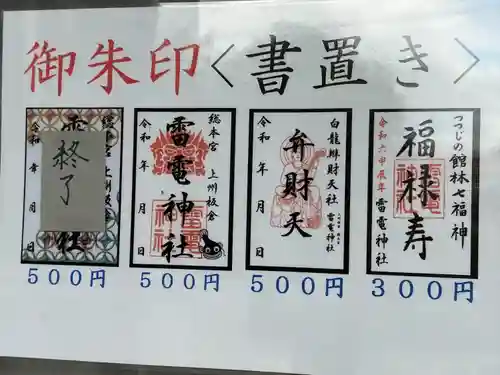 御朱印〈書置き〉
総本宮 上州板倉
雷
終了
社
令和 年 月 日
500円
総本宮 上州板倉
雷電神社
令和 年 月 日
500円
白龍辨財天社 雷電神社
弁財天
令和 年 月 日
500円
つつじの館林七福神
福禄寿
令和六甲辰年 雷電神社
300円